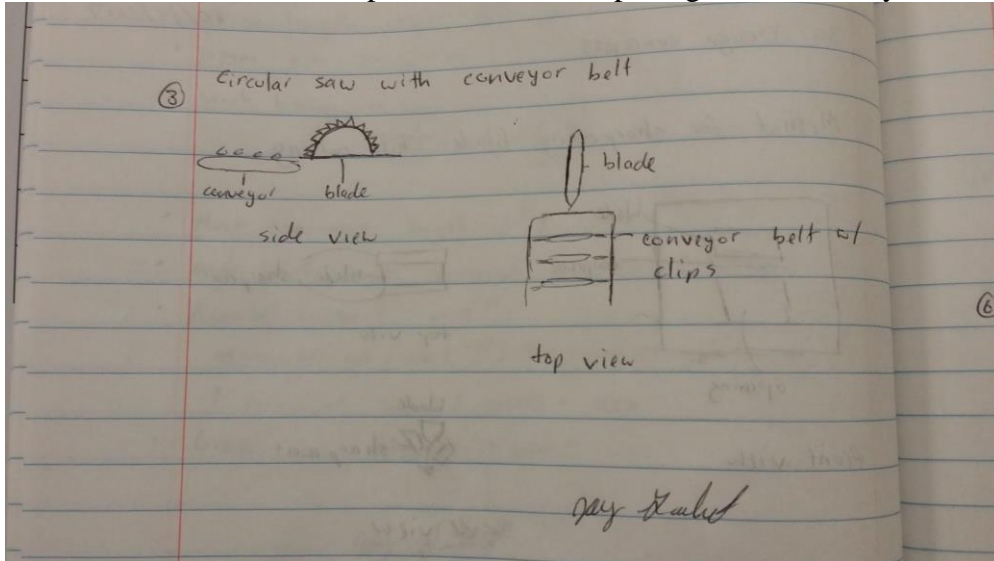 ③ Circular saw with conveyor belt
blade
conveyor blade
side view
conveyor belt w/
clips
⑥
top view
Jay